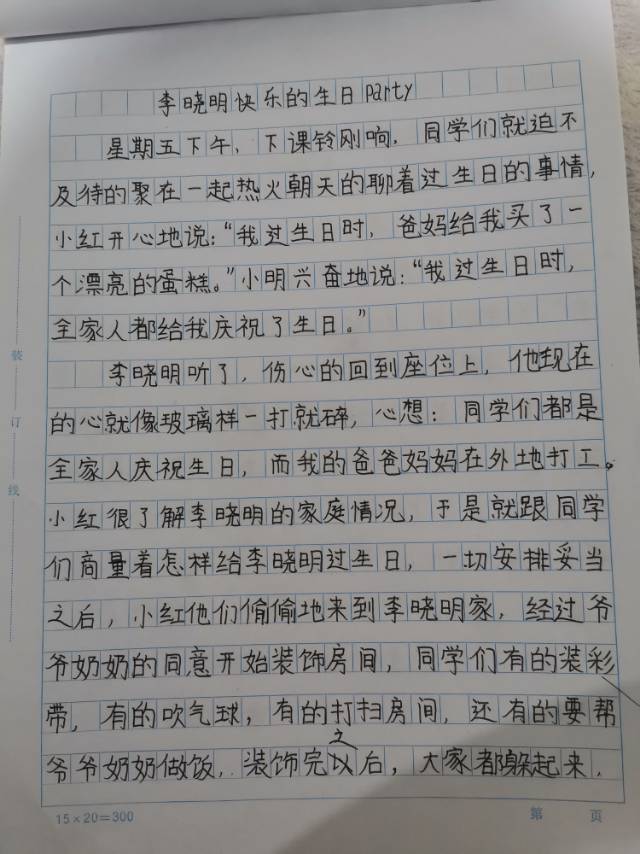 李晓明快乐的生日party
星期五下午，下课铃刚响，同学们就迫不
及待的聚在一起热火朝天的聊着过生日的事情，
小红开心地说：“我过生日时，爸妈给我买了一
个漂亮的蛋糕。”小明兴奋地说：“我过生日时，
全家人都给我庆祝了生日。”
李晓明听了，伤心的回到座位上，他现在
的心就像玻璃样一打就碎，心想：同学们都是
全家人庆祝生日，而我的爸爸妈妈在外地打工。
小红很了解李晓明的家庭情况，于是就跟同学
们商量着怎样给李晓明过生日，一切安排妥当
之后，小红他们偷偷地来到李晓明家，经过爷
爷奶奶的同意开始装饰房间，同学们有的装彩
带，有的吹气球，有的打扫房间，还有的要帮
爷爷奶奶做饭，装饰完之后，大家都躲起来，
15×20=300
第 页
装
订
线